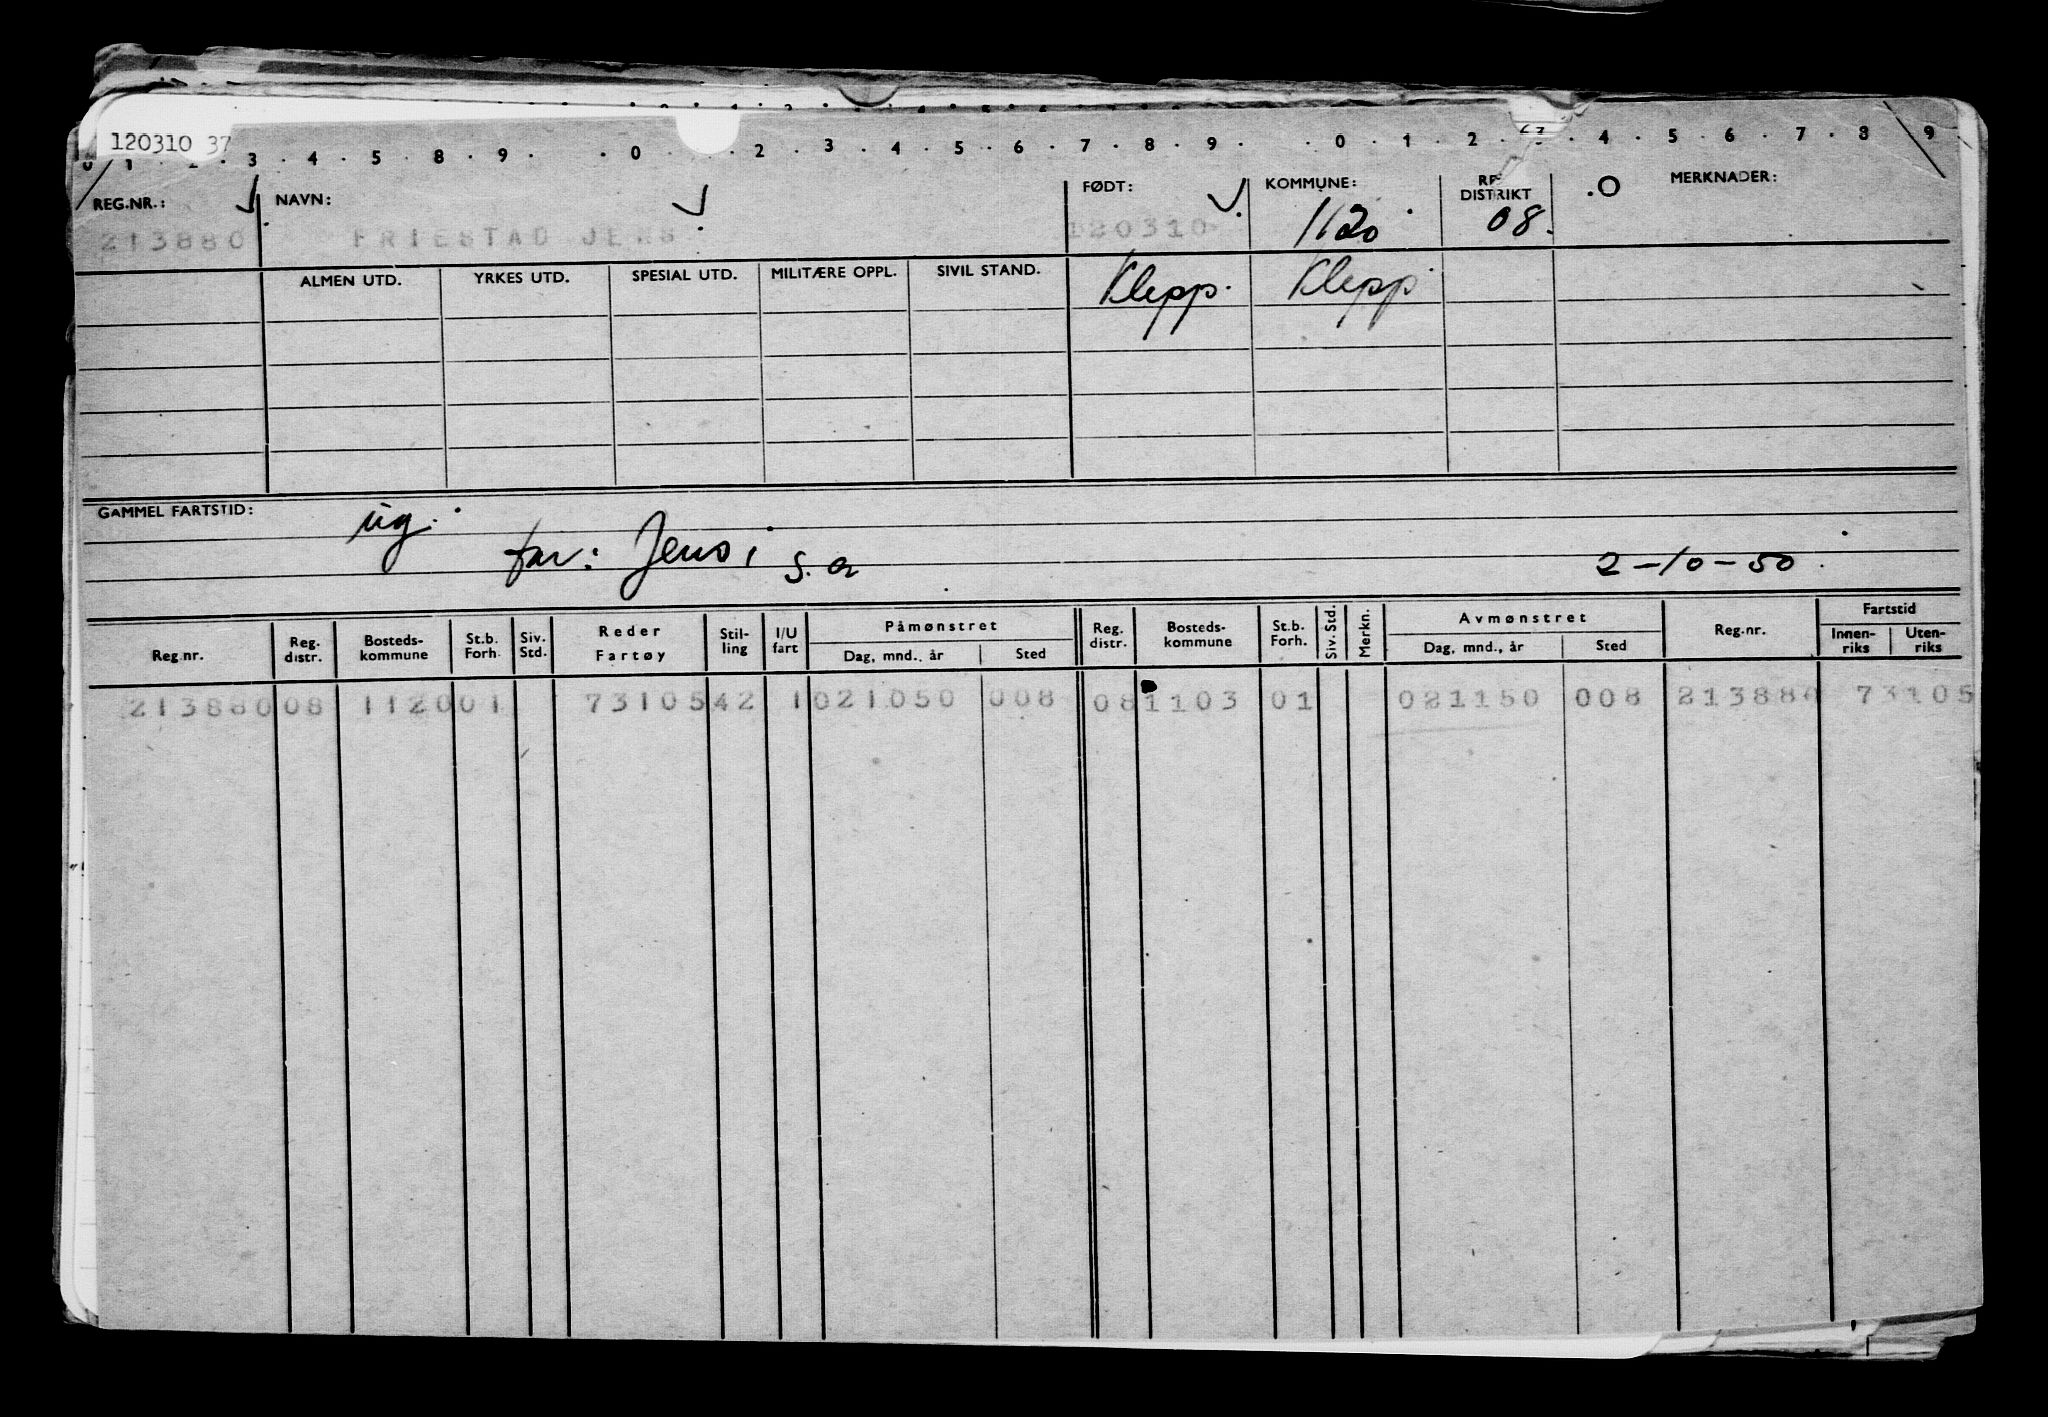 120310 37
0 1 2 3 4 5 8 9 0 2 3 4 5 6 7 8 9 0 1 2 4 5 6 7 8 9
REG.NR.: NAVN: FØDT: KOMMUNE: DISTRIKT MERKNADER:
213880 FRIESTAD JENS 120310 1120 08.
ALMEN UTD. YRKES UTD. SPESIAL UTD. MILITÆRE OPPL. SIVIL STAND. Klepp. Klepp
GAMMEL FARTSTID: ug.
far: Jens, s.a 2-10-50
Reg.nr. Reg. distr. Bosteds-kommune St.b. Forh. Siv. Std. Reder Fartøy Stil-ling I/U fart Påmønstret Dag, mnd., år Sted Reg. distr. Bosteds-kommune St.b. Forh. Siv. Std. Merkn. Avmønstret Dag, mnd., år Sted Reg.nr. Fartstid Innen-riks Uten-riks
213880 08 1120 01 73105 42 1 021050 008 08 1103 01 021150 008 213880 73105